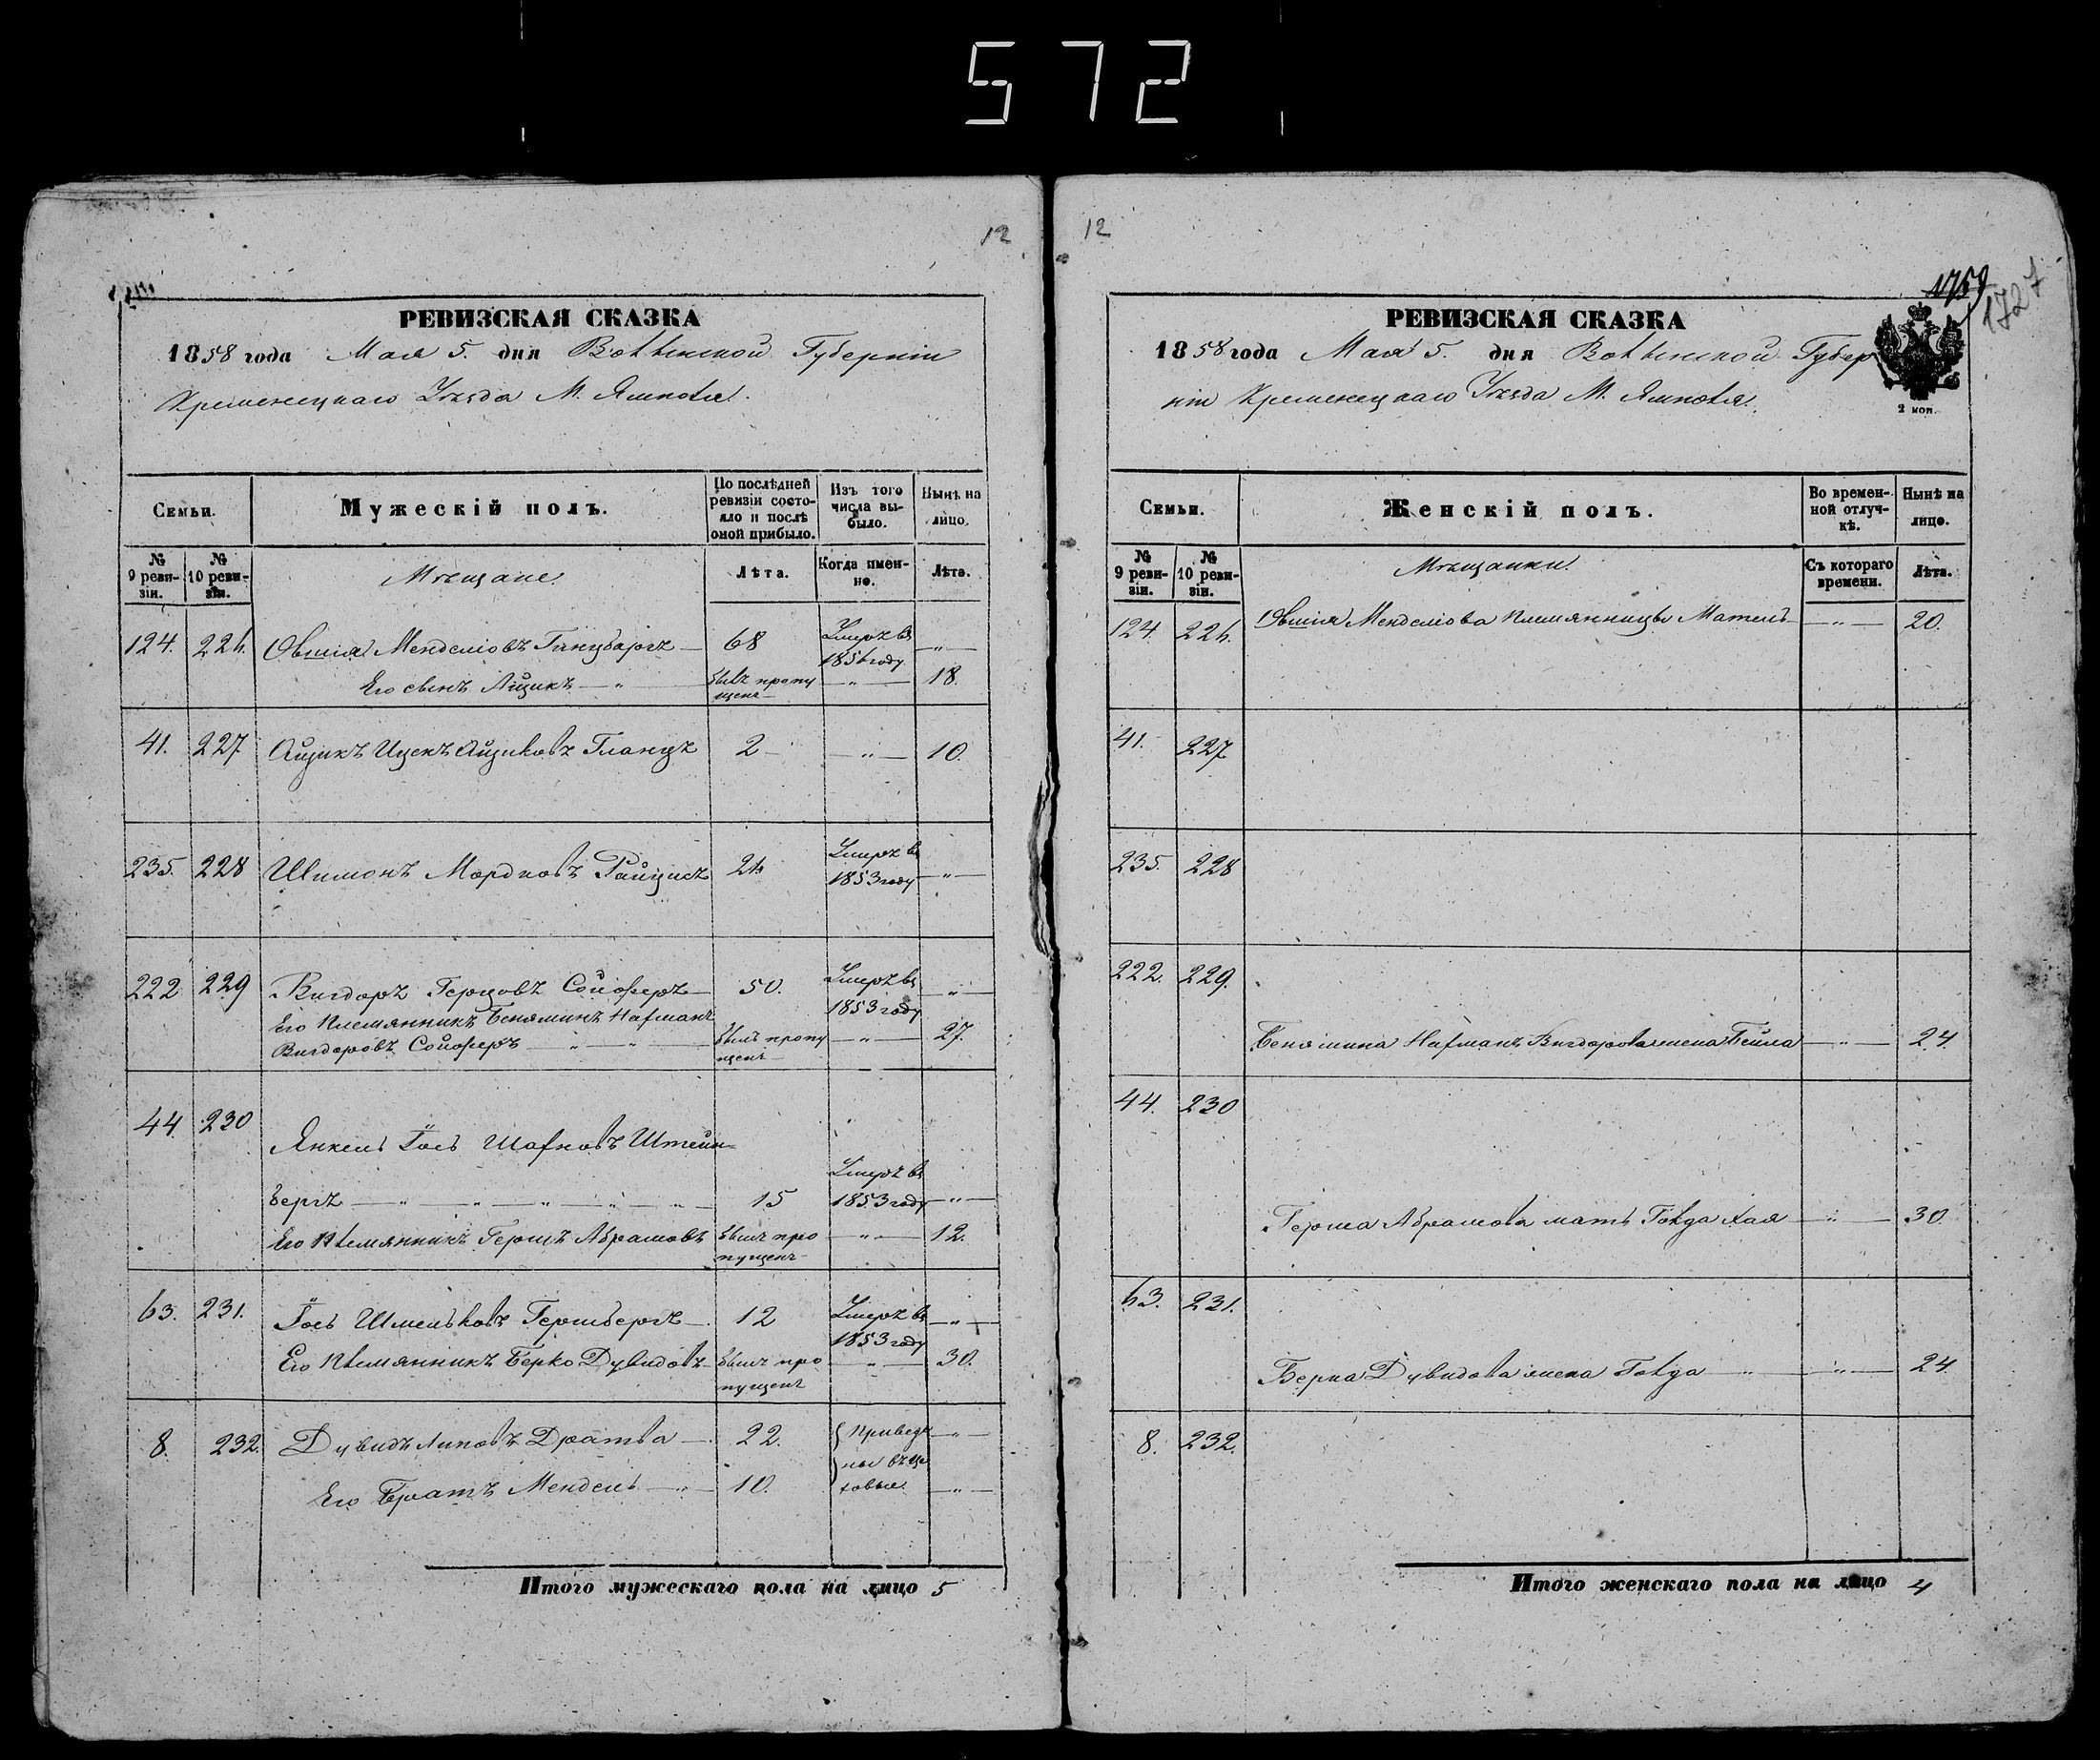 572
12
РЕВИЗСКАЯ СКАЗКА
1858 года Мая 5. дня Волынской Губерніи
Кременецкаго Уѣзда М. Ямполя.
Семьи.
Мужескій полъ.
По послѣдней ревизіи состояло и послѣ оной прибыло.
Изъ того числа выбыло.
Нынѣ на лицо.
№ 9 ревизіи.
№ 10 ревизіи.
Мѣщане
Лѣта.
Когда именно.
Лѣта.
124. 226. Овшія Менделіовъ 68 Умеръ въ 1856 году — „ —
Его сынъ Айзикъ — „ — былъ пропущенъ — „ — 18.
41. 227 Айзикъ Ицекъ Айзиковъ Гланцъ 2 — „ — 10.
235. 228 Шимонъ Мордковъ Райцикъ 26 Умеръ въ 1853 году — „ —
222 229 Вигдоръ Герцовъ Сойферъ 50. Умеръ въ 1853 году — „ —
Его племянникъ Беняминъ Нафманъ
Вигдоровъ Сойферъ — „ — „ — былъ пропущенъ — „ — 27.
44. 230 Янкель Іось Шафновъ Штейн-
бергъ — „ — „ — „ — „ — „ — 15 Умеръ въ 1853 году — „ —
Его племянникъ Гершъ Абрамовъ былъ пропущенъ — „ — 12.
63. 231. Іось Шмельковъ Гершбергъ 12 Умеръ въ 1853 году — „ —
Его племянникъ Берко Дувидовъ былъ пропущенъ — „ — 30.
8. 232. Дувидъ Липовъ Дратва — 22. Приведены въ цеховые — „ —
Его братъ Мендель — „ — 10. — „ —
Итого мужескаго пола на лицо 5
12
1759
1727
РЕВИЗСКАЯ СКАЗКА
1858 года Мая 5. дня Волынской Губер
ніи Кременецкаго Уѣзда М. Ямполя.
2 коп.
Семьи.
Женскій полъ.
Во временной отлучкѣ.
Нынѣ на лицо.
№ 9 ревизіи.
№ 10 ревизіи.
Мѣщанки
Съ котораго времени.
Лѣта.
124. 226. Овшія Менделіова племянница Матель — „ — 20.
41. 227
235. 228
222. 229.
Бенямина Нафмана Вигдорова жена Бейла — „ — 24.
44. 230
Герша Абрамова мать Голда Хая — „ — 30.
63. 231.
Берка Дувидова жена Голда — „ — „ — 24
8. 232.
Итого женскаго пола на лицо 4